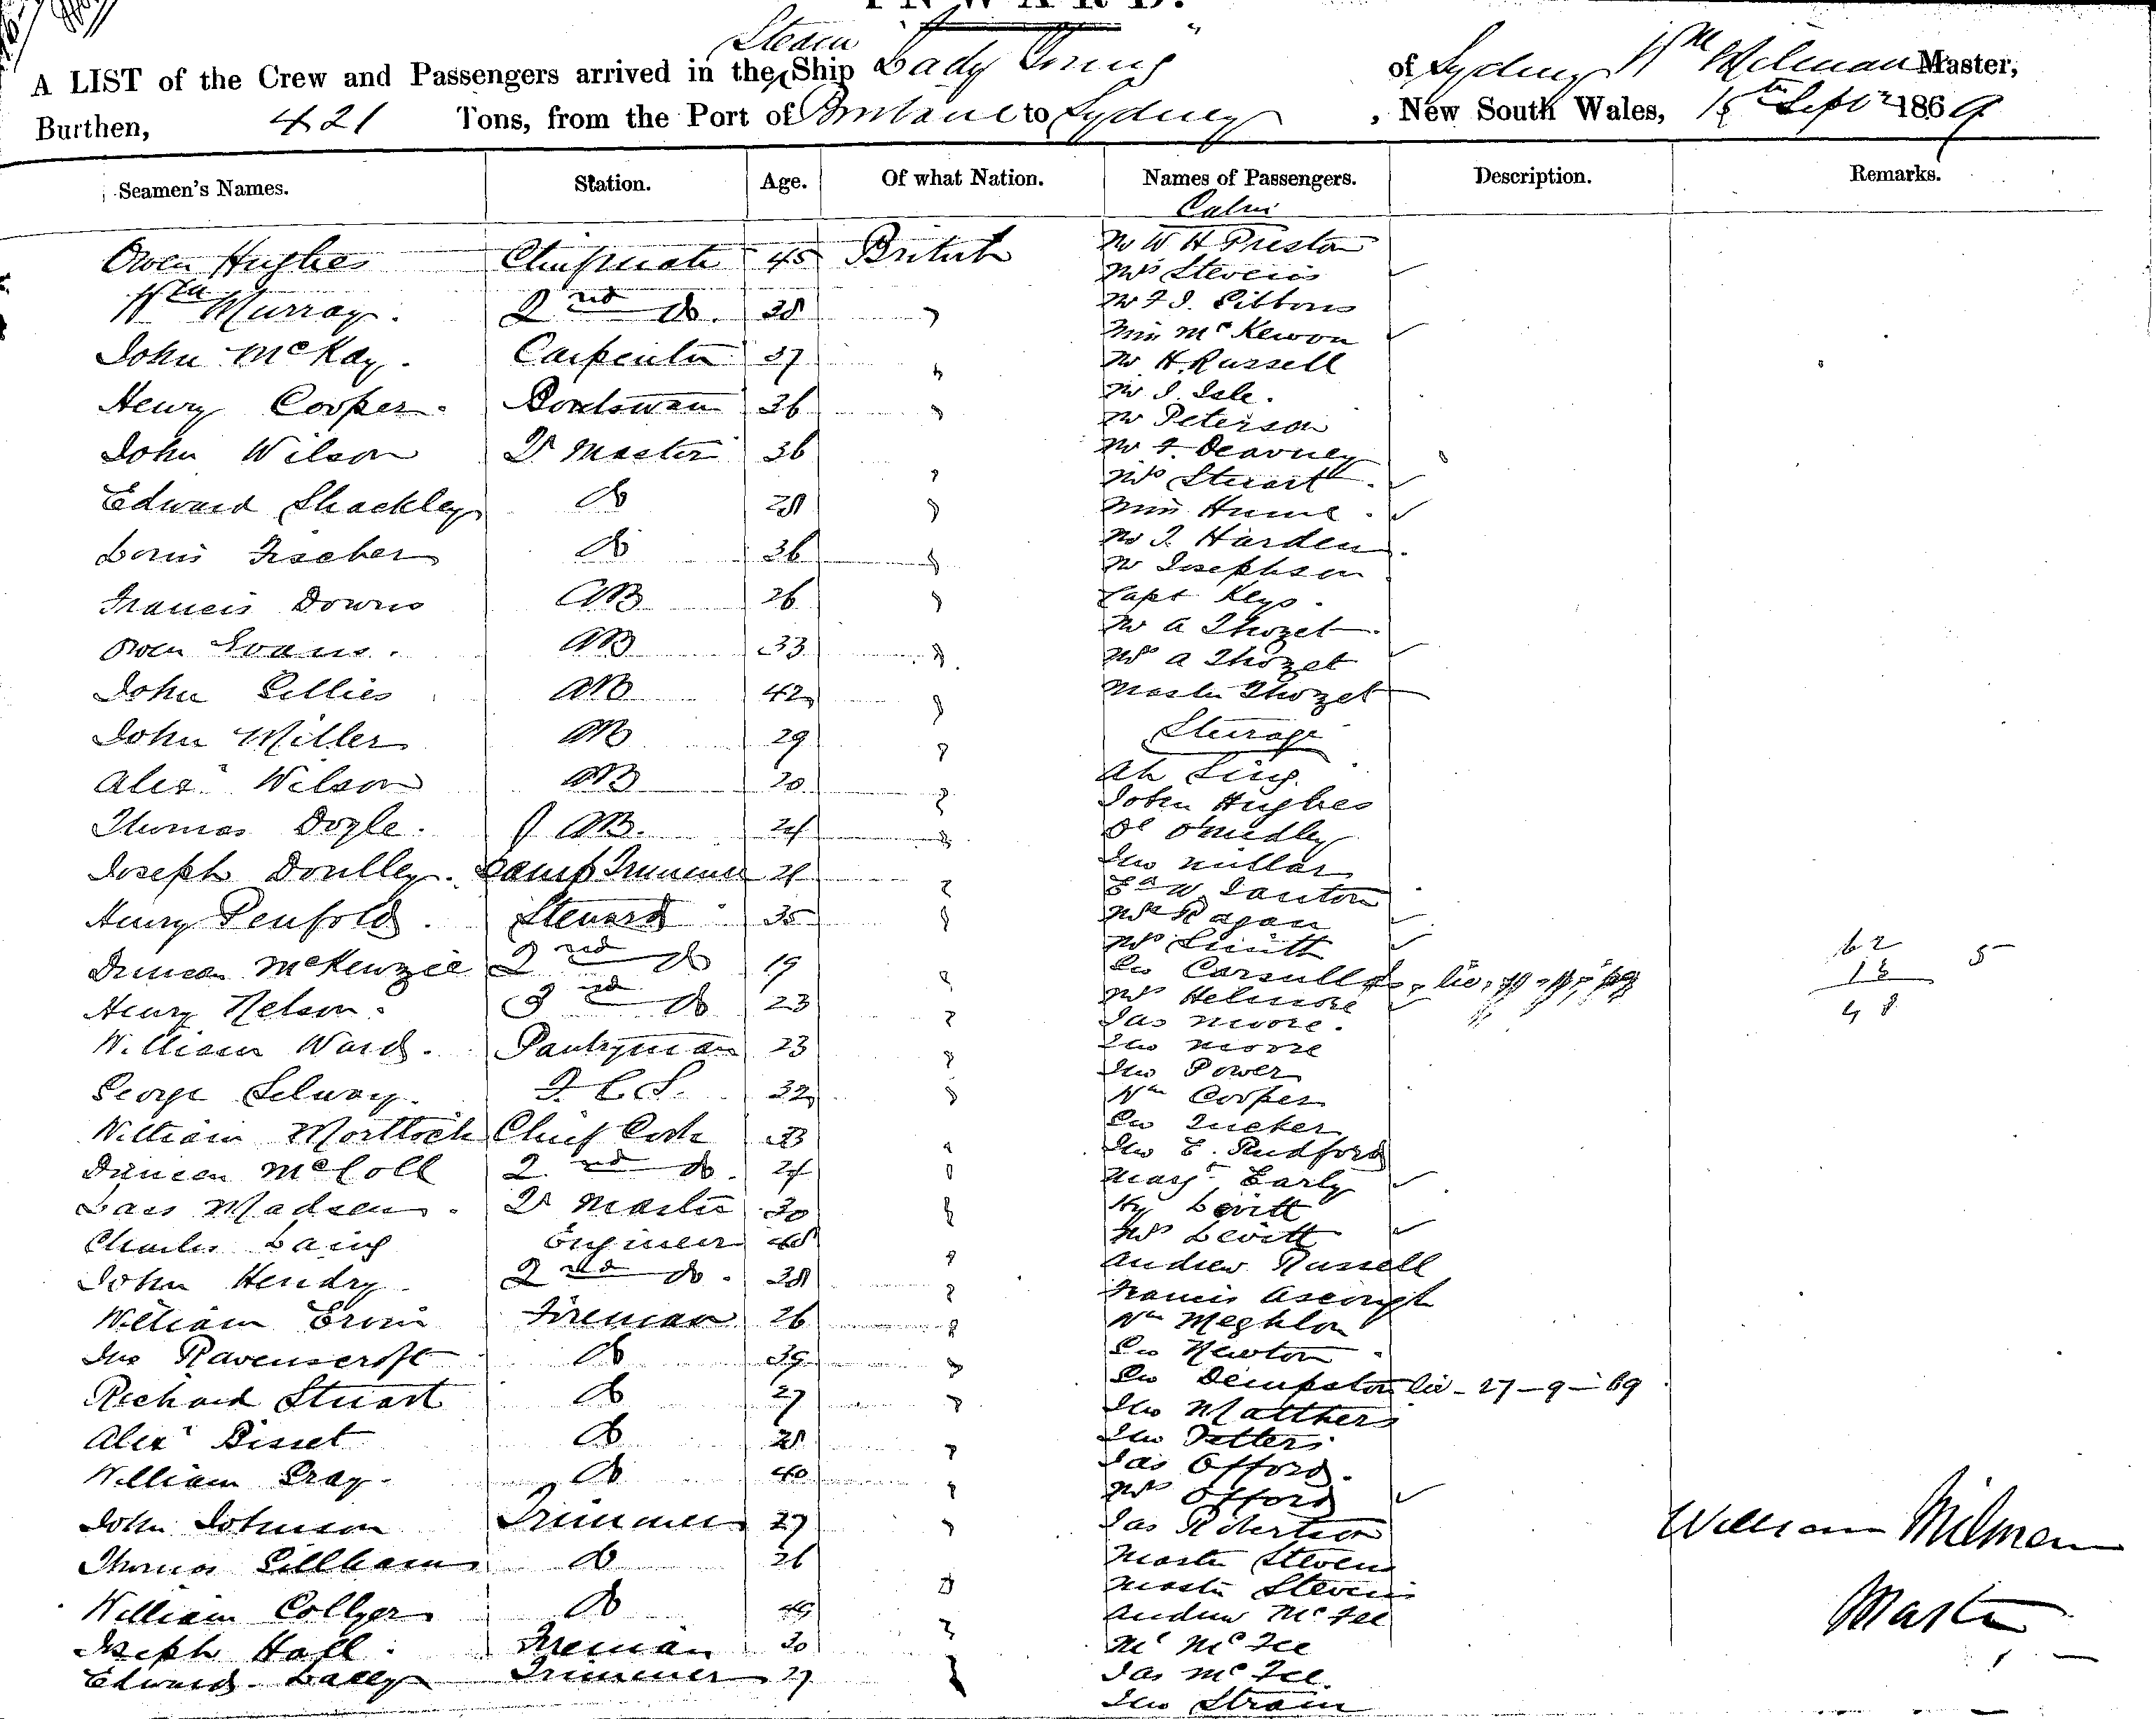 INWARD.
A LIST of the Crew and Passengers arrived in the Steam Ship "Lady Young" of Sydney Wm Milman Master,
Burthen, 421 Tons, from the Port of Brisbane to Sydney, New South Wales, 15th Septr 1869
Seamen's Names. Station. Age. Of what Nation. Names of Passengers. Description. Remarks.
Cabin
Owen Hughes Chief mate 45 British
Mr W H Preston
Mrs Stevens
Wm Murray. 2nd do. 38 "
Mr F J. Gibbons
Miss McKewon
John McKay. Carpenter 37 "
Mr H. Russell
Henry Cooper. Boatswain 36 "
Mr J. Isle.
Mr Peterson
John Wilson Qr Master 36 "
Mr F. Dearney
Mrs Stuart.
Edward Shackley do 28 "
Miss Hume.
Louis Fischer do 36 "
Mr J. Harden.
Mr Josephson
Francis Downs AB 26 "
Capt Keys.
Mr A Thozet.
Owen Evans. AB 33 "
Mrs A Thozet
John Gillies AB 42 "
Master Thozet
John Miller AB 29 "
Steerage
Alexr Wilson AB 20 "
Ah Sing.
John Hughes
Thomas Doyle. AB. 24 "
Jno Millar
Joseph Doulley. Lamp Trimmer 24 "
Henry Penfold. Steward 35 "
Mrs Ragan
Mrs Smith
Duncan McKenzie 2nd do 19 "
62 5
Geo Carsull
13
Henry Nelson. 3rd do 23 "
Mrs Helmore
48
Jas Moore.
William Ward. Pantryman 23 "
Jno Moore
Jno Power
George Selway. F. C. S. 32 "
Wm Cooper
William Mortlock Chief Cook 33 "
Geo Tucker
Jno E. Rudford
Duncan McColl 2nd do. 24 "
Margt Early
Lars Madsen. Qr Master 30 "
Hy Levitt
Charles Laing Engineer 48 "
Mrs Levitt
Andrew Russell
John Hendry. 2nd do. 38 "
Francis Ascough
William Ervin Fireman 26 "
Wm Meghlon
Jno Ravenscroft do 39 "
Geo Newton
Geo Dempston liv - 27 - 9 - 69
Richard Stuart do 27 "
Jno Matthers
Alexr Bisset do 28 "
Jno Petters
William Gray. do 40 "
Jas Offord.
Mrs Offord
John Johnson Trimmer 27 "
Jas Robertson
William Milman
Thomas Gillham do 26
Master Stevens
Master Stevens
William Collyer do 49 "
Andrew McFee
Master
Joseph Hall. Fireman 20 "
Mc McFee
Edward Lally Trimmer 27 "
Jas McFee.
Jno Strain